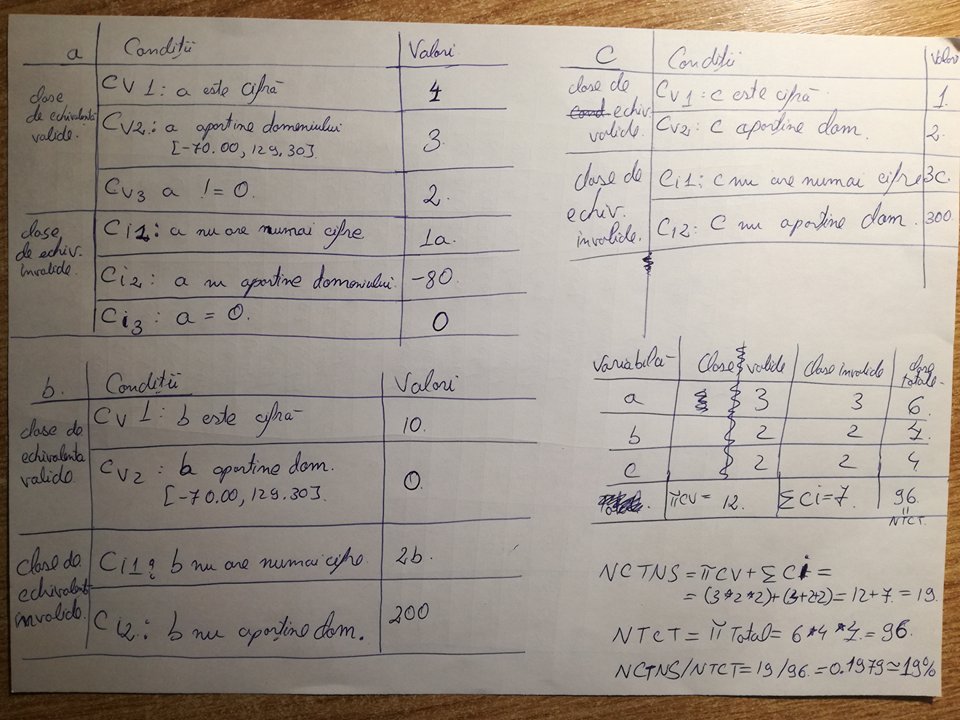 a Condiții Valori
clase de echivalenta valide.
CV1: a este cifră 4
CV2: a aparține domeniului 3
[-70.00, 129.30]
CV3 a != 0. 2
clase de echiv. invalide.
Ci1: a nu are numai cifre 1a.
Ci2: a nu aparține domeniului -80
Ci3: a = 0. 0
b. Condiții Valori
clase de echivalenta valide
CV1: b este cifră 10.
CV2: b aparține dom. 0.
[-70.00, 129.30].
Clase de echivalent invalide.
Ci1: b nu are numai cifre 2b.
Ci2: b nu aparține dom. 200
C Condiții Valori
clase de echiv. valide.
CV1: c este cifră 1.
CV2: c aparține dom. 2.
clase de echiv. invalide.
Ci1: c nu are numai cifre 3c.
Ci2: c nu aparține dom. 300
Variabilă Clase valide Clase invalide clase totale
a 3 3 6
b 2 2 4
c 2 2 4
πCV = 12. ΣCi=7 96.
= NTCT.
NCTNS = πCV + ΣCi =
= (3*2*2)+(3+2+2)=12+7=19.
NTCT = π Total = 6*4*4 = 96.
NCTNS/NTCT = 19/96 = 0.1979 ≃ 19%